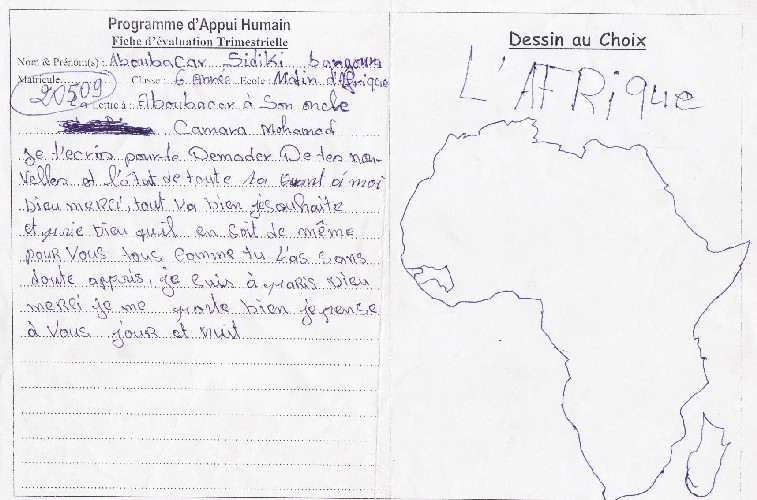 Programme d'Appui Humain
Fiche d'évaluation Trimestrielle
Nom & Prénom(s) : Aboubacar Sidiki bangoura
Matricule 20509 Classe : 6 Année Ecole : Matin d'Afrique
Lettre à : Aboubacar à Son oncle
Camara Mohamed
je t'ecris pour te Demader De tes nou-
velles et l'état de toute ta Quant à moi
Dieu merci, tout va bien je souhaite
et prie Dieu qu'il en Soit de même
pour Vous tous Comme tu L'as sans
doute appris, je Suis à paris Dieu
merci je me porte bien je pense
à Vous jour et nuit
Dessin au Choix
L'AFRique